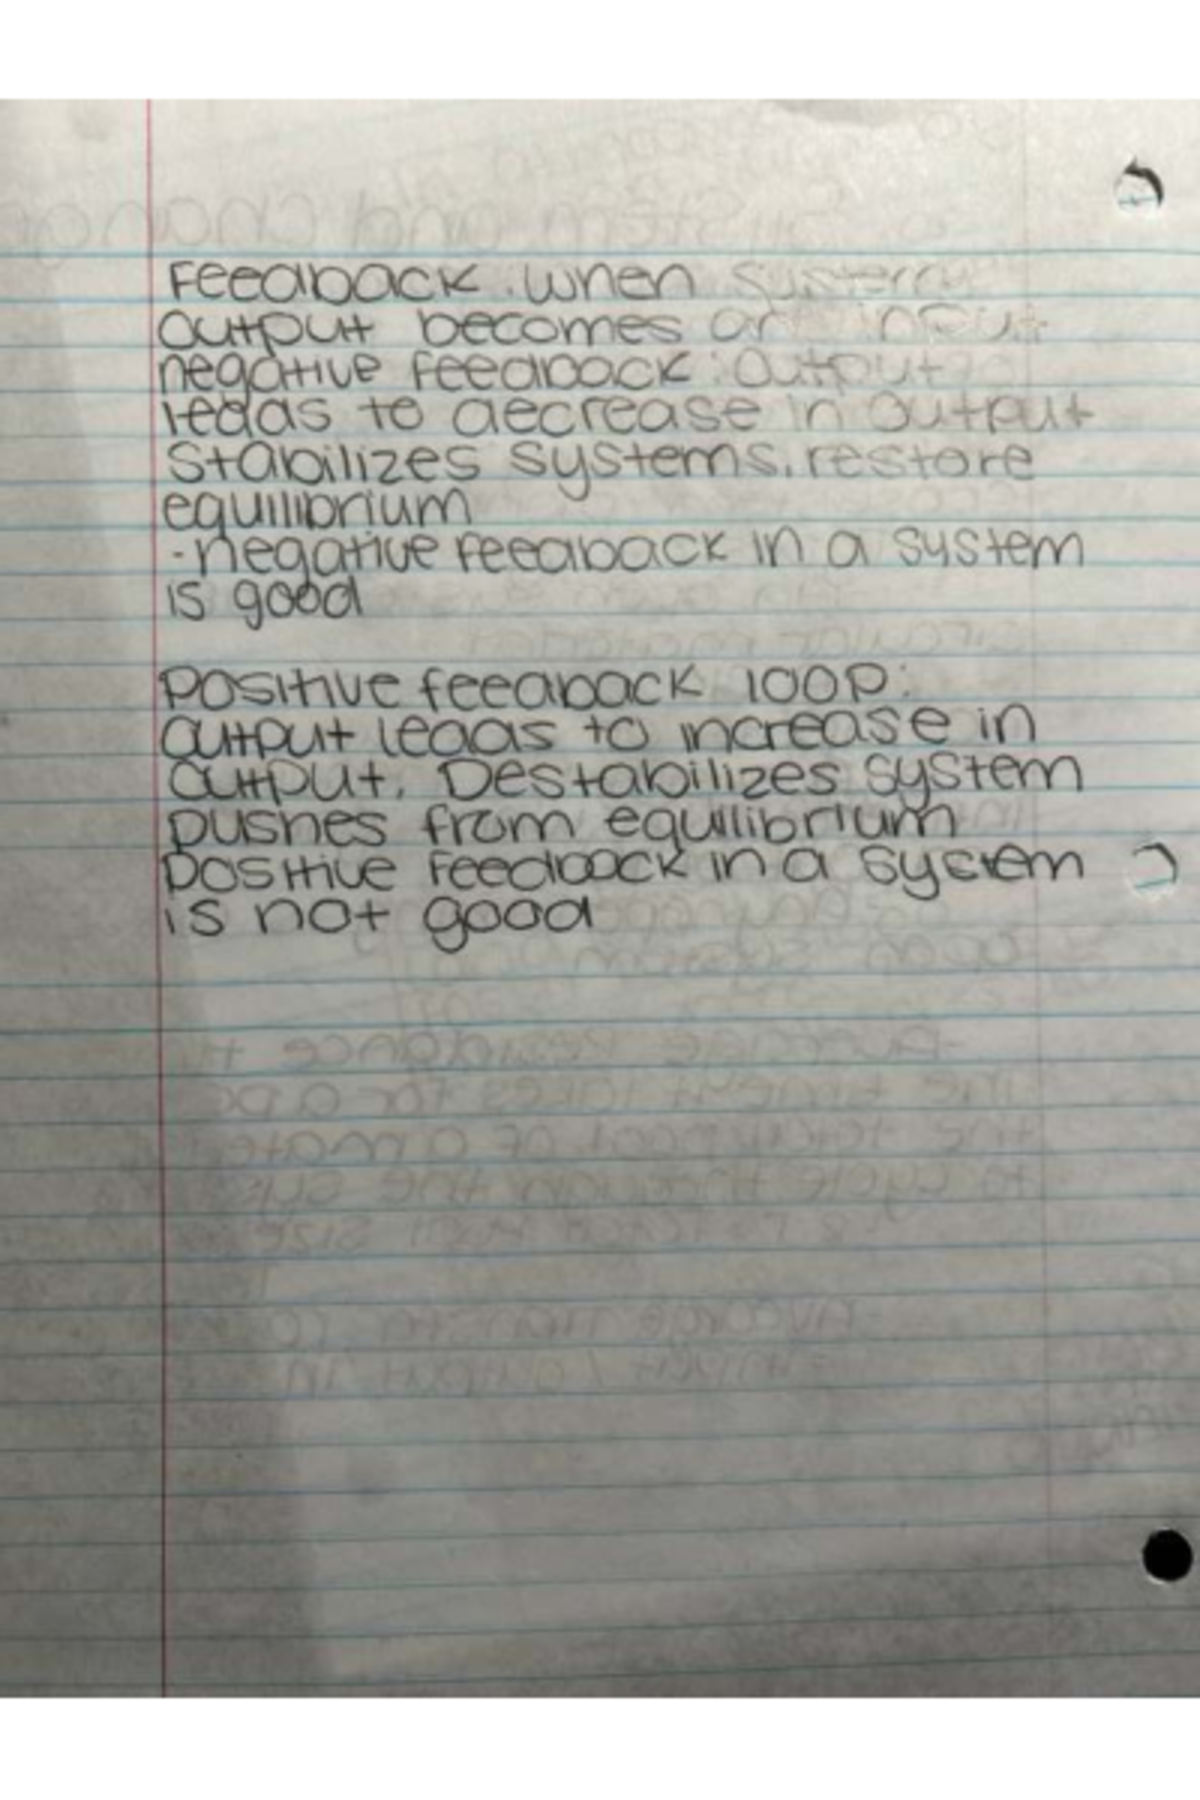 Feedback. when system
output becomes an input
negative feedback: output
leads to decrease in output
Stabilizes systems. restore
equilibrium
- negative feedback in a system
is good
Positive feedback loop:
output leads to increase in
output. Destabilizes system
pushes from equilibrium
positive feedback in a system
is not good